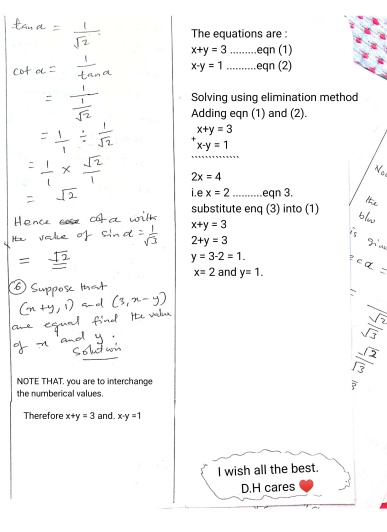 tan α = 1/√2.
cot α = 1/tan α
= 1/(1/√2)
= 1/1 ÷ 1/√2
= 1/1 × √2/1
= √2
Hence cot α with
the value of sin α = 1/√3
= √2
⑥ Suppose that
(x+y, 1) and (3, x-y)
are equal find the value
of x and y.
Solution
NOTE THAT. you are to interchange
the numberical values.
Therefore x+y = 3 and. x-y =1
The equations are :
x+y = 3 .........eqn (1)
x-y = 1 .........eqn (2)
Solving using elimination method
Adding eqn (1) and (2).
x+y = 3
+
x-y = 1
2x = 4
i.e x = 2 ..........eqn 3.
substitute enq (3) into (1)
x+y = 3
2+y = 3
y = 3-2 = 1.
x= 2 and y= 1.
I wish all the best.
D.H cares ❤
the